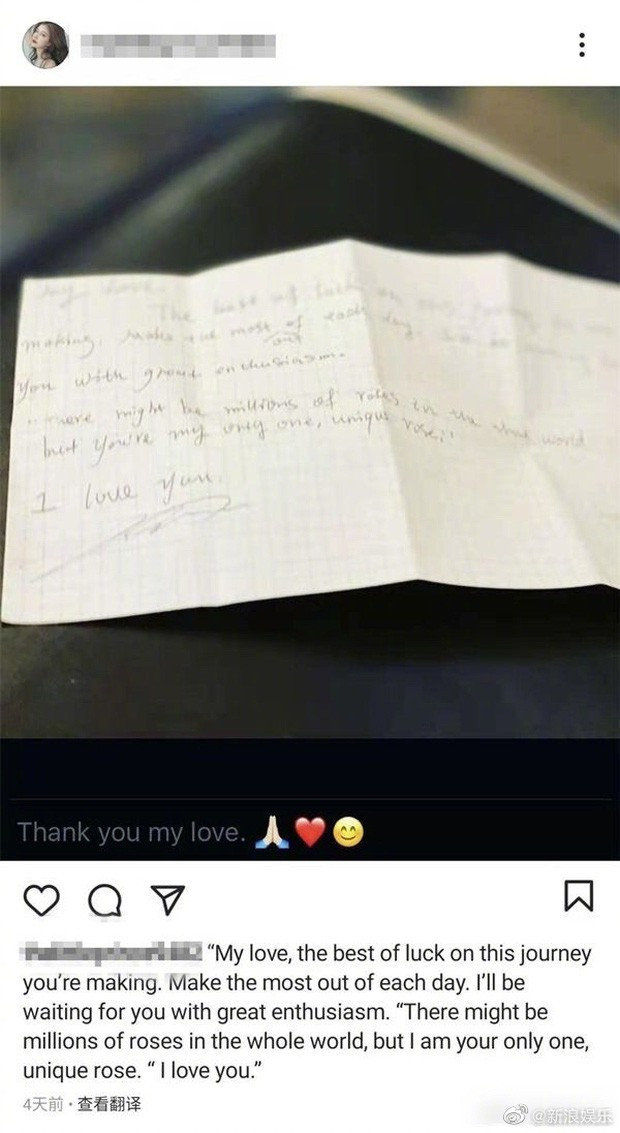 My love
The best of luck on
making. Make the most of each day.
out
You with great enthusiasm.
"There might be millions of roses in the world
but you're my only one, unique rose."
I love you.
Thank you my love. 🙏🏻❤️😊
“My love, the best of luck on this journey
you’re making. Make the most out of each day. I’ll be
waiting for you with great enthusiasm. “There might be
millions of roses in the whole world, but I am your only one,
unique rose. “ I love you.”
4天前 · 查看翻译
@新浪娱乐